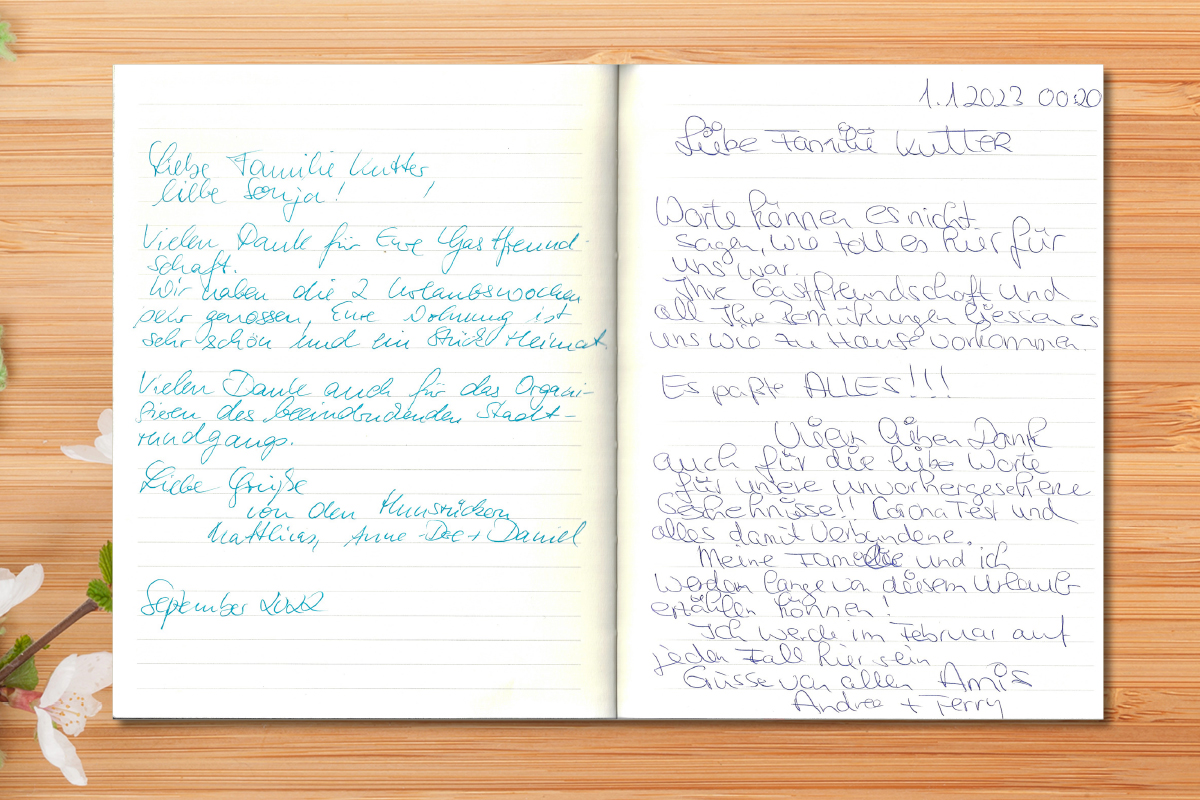 Liebe Familie Kutter,
liebe Sonja!
Vielen Dank für Eure Gastfreund-
schaft.
Wir haben die 2 Urlaubswochen
sehr genossen, Eure Wohnung ist
sehr schön und ein Stück Heimat.
Vielen Dank auch für das Organi-
sieren des beeindruckenden Stadt-
rundgangs.
Liebe Grüße
von den Hunsrückern
Matthias, Anne + Daniel
September 2022
1.1.2023 00:20
Liebe Familie Kutter
Worte können es nicht
sagen, wie toll es hier für
uns war.
Ihre Gastfreundschaft und
all Ihre Bemühungen liessen es
uns wie zu Hause vorkommen.
Es paßte ALLES!!!
Vielen lieben Dank
auch für die liebe Worte
für unsere unvorhergesehene
Geschehnisse!! Corona Test und
alles damit Verbundene.
Meine Familie und ich
werden lange von diesem Urlaub
erzählen können!
Ich werde im Februar auf
jeden Fall hier sein
Grüsse von allen Amis
Andrea + Terry